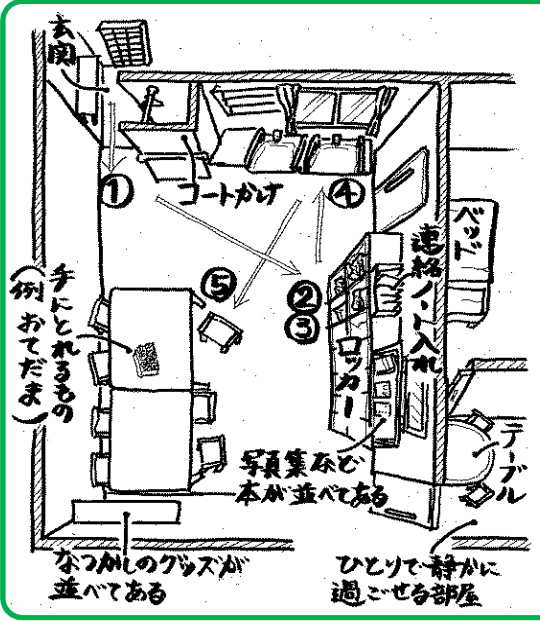 玄関
①
コートかけ
④
ベッド
連絡ノート入れ
⑤
②
③
ロッカー
手にとれるもの
(例 おてだま)
テーブル
写真集など
本が並べてある
なつかしのグッズが
並べてある
ひとりで静かに
過ごせる部屋